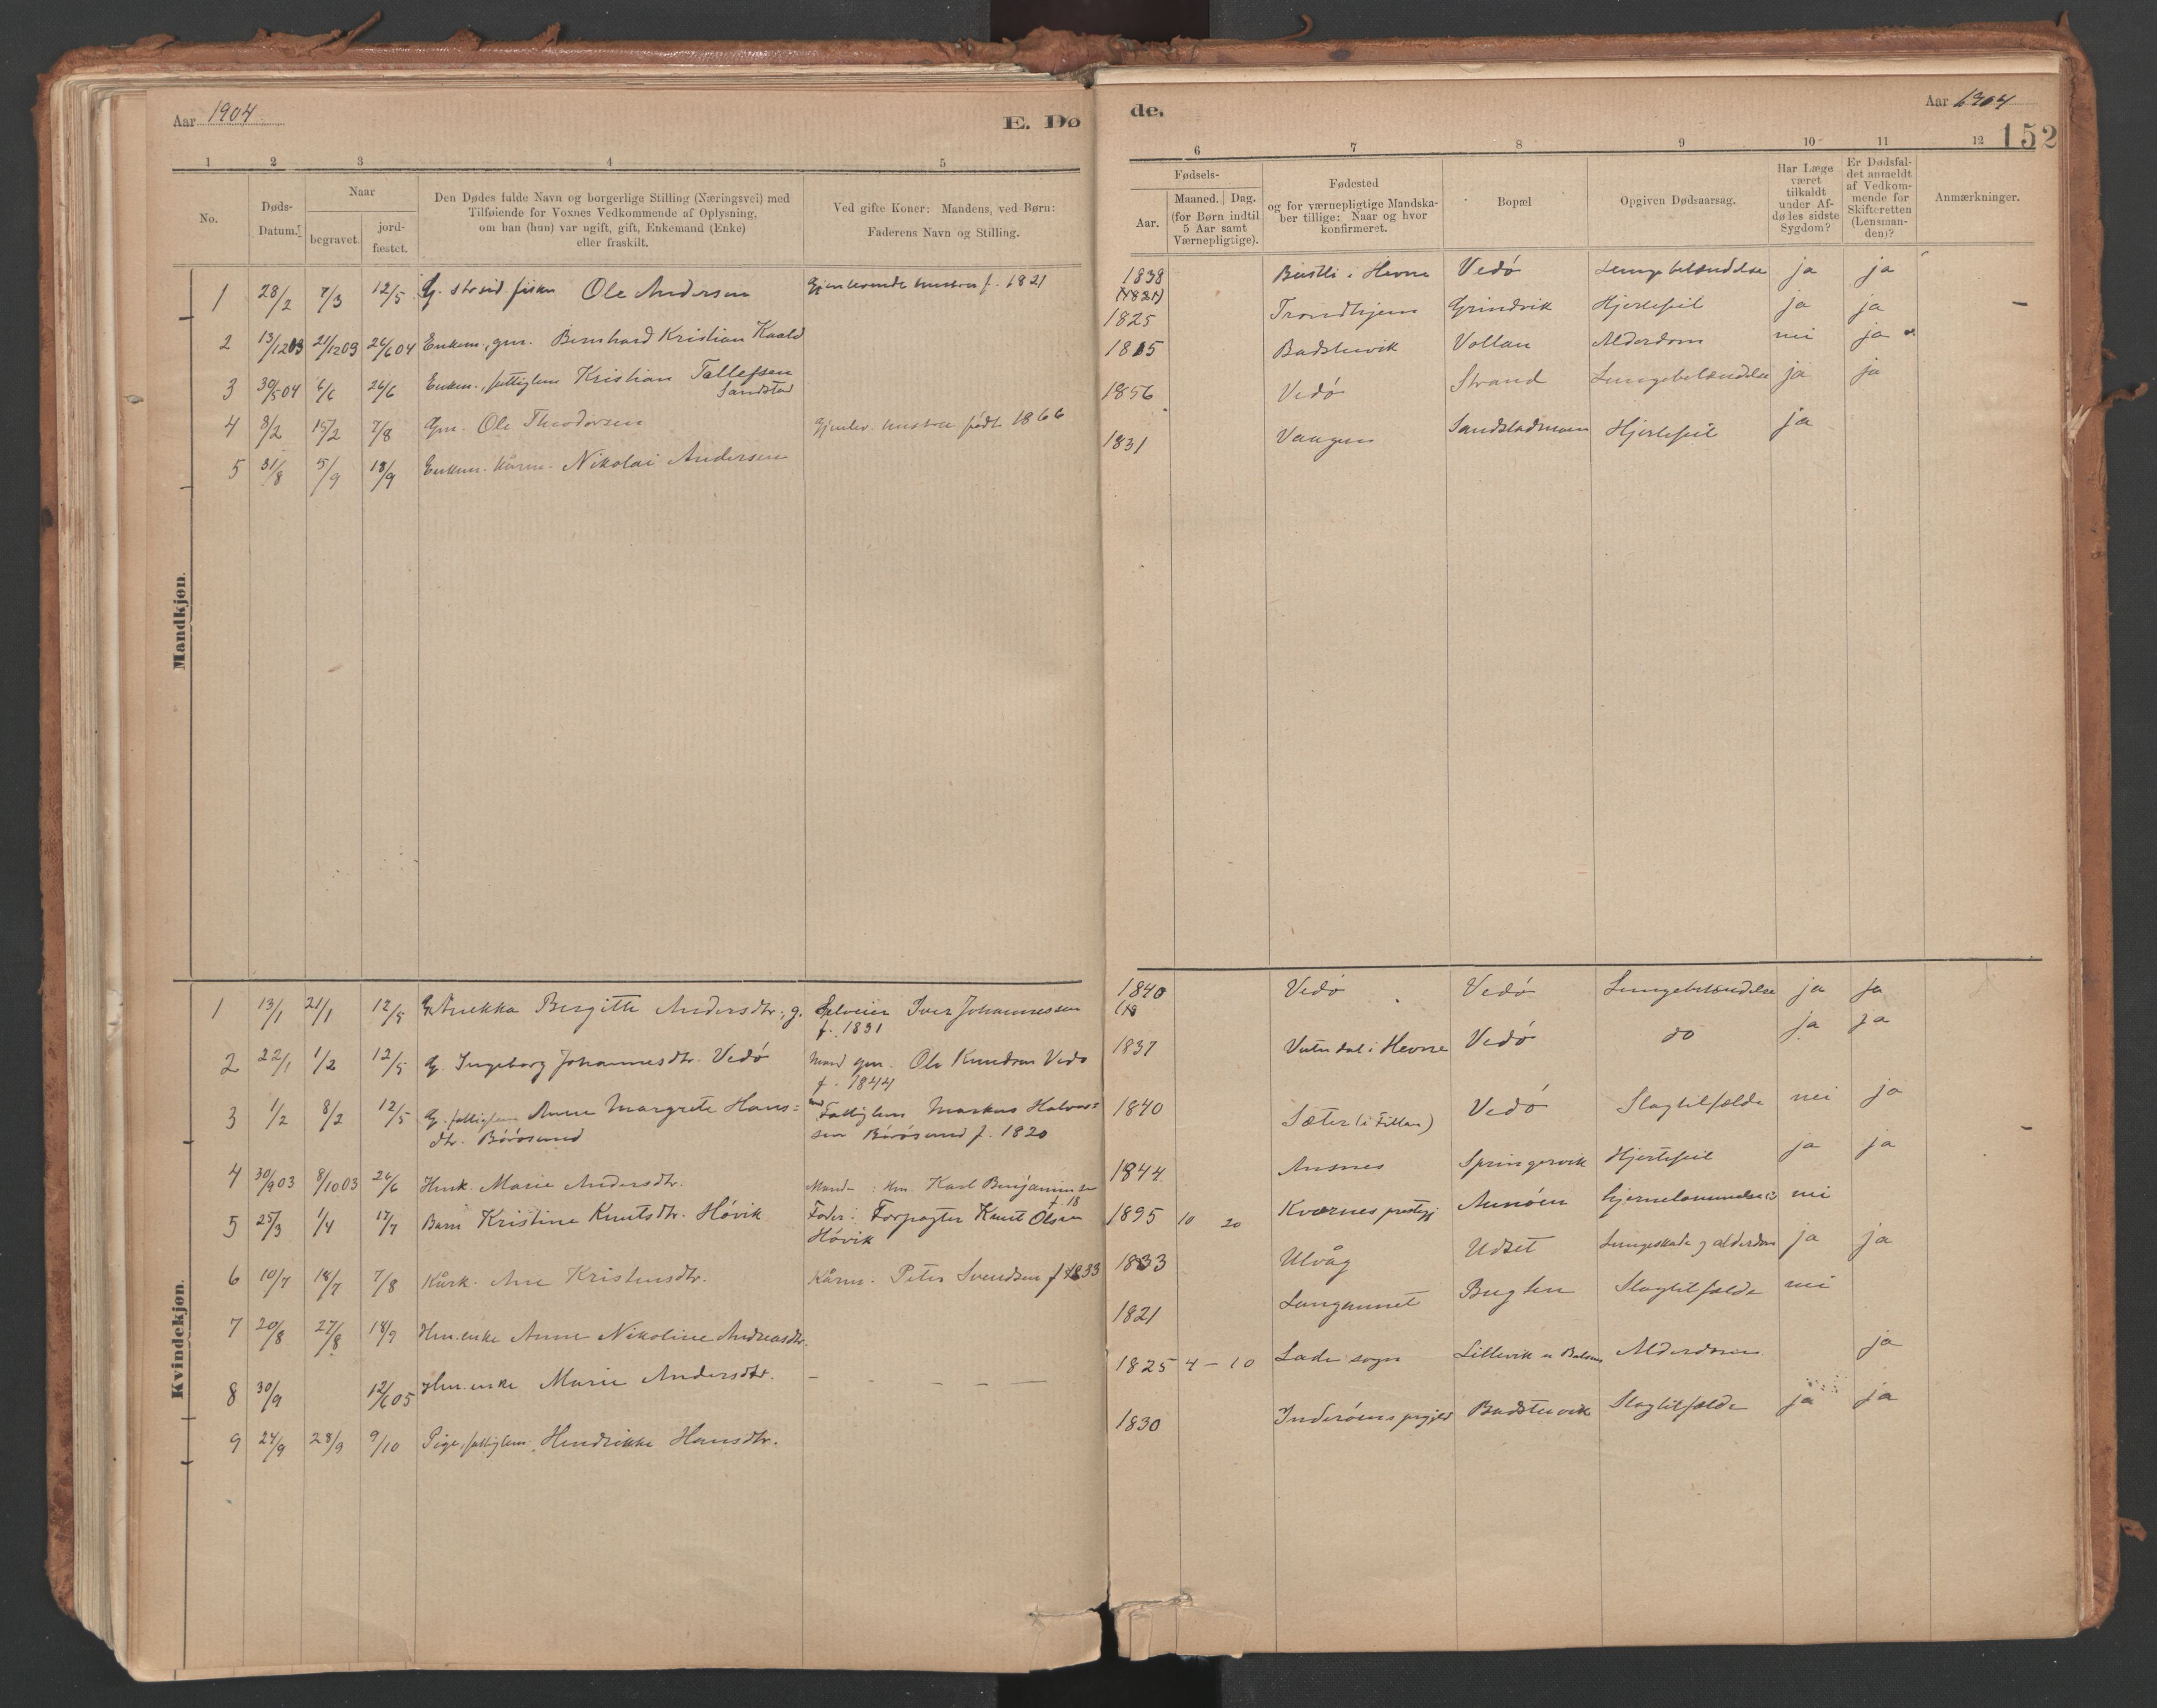 Aar 1904
E. Dø
de.
Aar 1904
152
1 2 3 4 5 6 7 8 9 10 11 12
No.
Døds-
Datum.
Naar
begravet.
jord-
fæstet.
Den Dødes fulde Navn og borgerlige Stilling (Næringsvei) med
Tilføiende for Voxnes Vedkommende af Oplysning,
om han (hun) var ugift, gift, Enkemand (Enke)
eller fraskilt.
Ved gifte Koner: Mandens, ved Børn:
Faderens Navn og Stilling.
Fødsels-
Aar.
Maaned. Dag.
(for Børn indtil
5 Aar samt
Værnepligtige).
Fødested
og for værnepligtige Mandska-
ber tillige: Naar og hvor
konfirmeret.
Bopæl
Opgiven Dødsaarsag.
Har Læge
været
tilkaldt
under Af-
dødes sidste
Sygdom?
Er Dødsfal-
det anmeldt
af Vedkom-
mende for
Skifteretten
(Lensman-
den)?
Anmærkninger.
Mandkjøn.
1 28/2 7/3 12/5 G. strsid fisker Ole Andersen Gjenlevende hustru f. 1821 1838 Bustli i Hevne Vedø Lungebetændelse ja ja
(1821)
2 13/1203 21/1203 26/604 Enkem., gm. Bernhard Kristian Kaald 1825 Trondhjem Grindvik Hjertefeil ja ja
3 30/504 6/6 26/6 Enkem., fattiglem Kristian Tollefsen
Sandstad 1815 Badstuvik Vollan Alderdom nei ja
4 8/2 15/2 7/8 Gm. Ole Theodorsen Gjenlev. hustru født 1866 1856 Vedø Strand Lungebetændelse ja ja
5 31/8 5/9 18/9 Enkem. kårm. Nikolai Andersen 1831 Vaagen Sandstadmoen Hjertefeil ja
Kvindekjøn.
1 13/1 21/1 12/5 G. Anekka Bergitte Andersdtr., g. Selveier Iver Johannessen
f. 1831 1840 Vedø Vedø Lungebetændelse ja ja
2 22/1 1/2 12/5 G. Ingeborg Johannesdtr. Vedø Mand gm. Ole Knudsen Vedø
f. 1844 1837 i Hevne Vedø do ja ja
3 1/2 8/2 12/5 G. fattiglem Anne Margrete Hans=
dtr. Børøsund Fattiglem Markus Halvor=
sen Børøsund f. 1820 1840 Sæter (i Fillan) Vedø Slagtilfælde nei ja
4 30/903 8/1003 26/6 Hmk. Marie Andersdtr. Manden: Hm. Karl Benjaminsen
f. 18 1844 Ansnes Springervik Hjertefeil ja ja
5 25/3 1/4 17/7 Barn Kristine Knutsdtr. Høvik Fader: Forpagter Knut Olsen
Høvik 1895 10 20 Kværnes prestegj Aunøen nei
6 10/7 18/7 7/8 Kårk. Ane Kristensdtr. Kårm. Peter Svendsen f 1833 1833 Ulvåg Udset Lungeskade og alderdom ja ja
7 20/8 27/8 18/9 Hm.enke Anne Nikoline Andreasdtr. 1821 Langemnet Bugten Slagtilfælde nei
8 30/9 12/605 Hm.enke Marie Andersdtr. 1825 4 - 10 Lade sogn Lillevik Alderdom ja
9 24/9 28/9 9/10 Pige, fattiglem, Hendrikke Hansdtr. 1830 Inderøens prgjeld Badstuvik Slagtilfælde ja ja